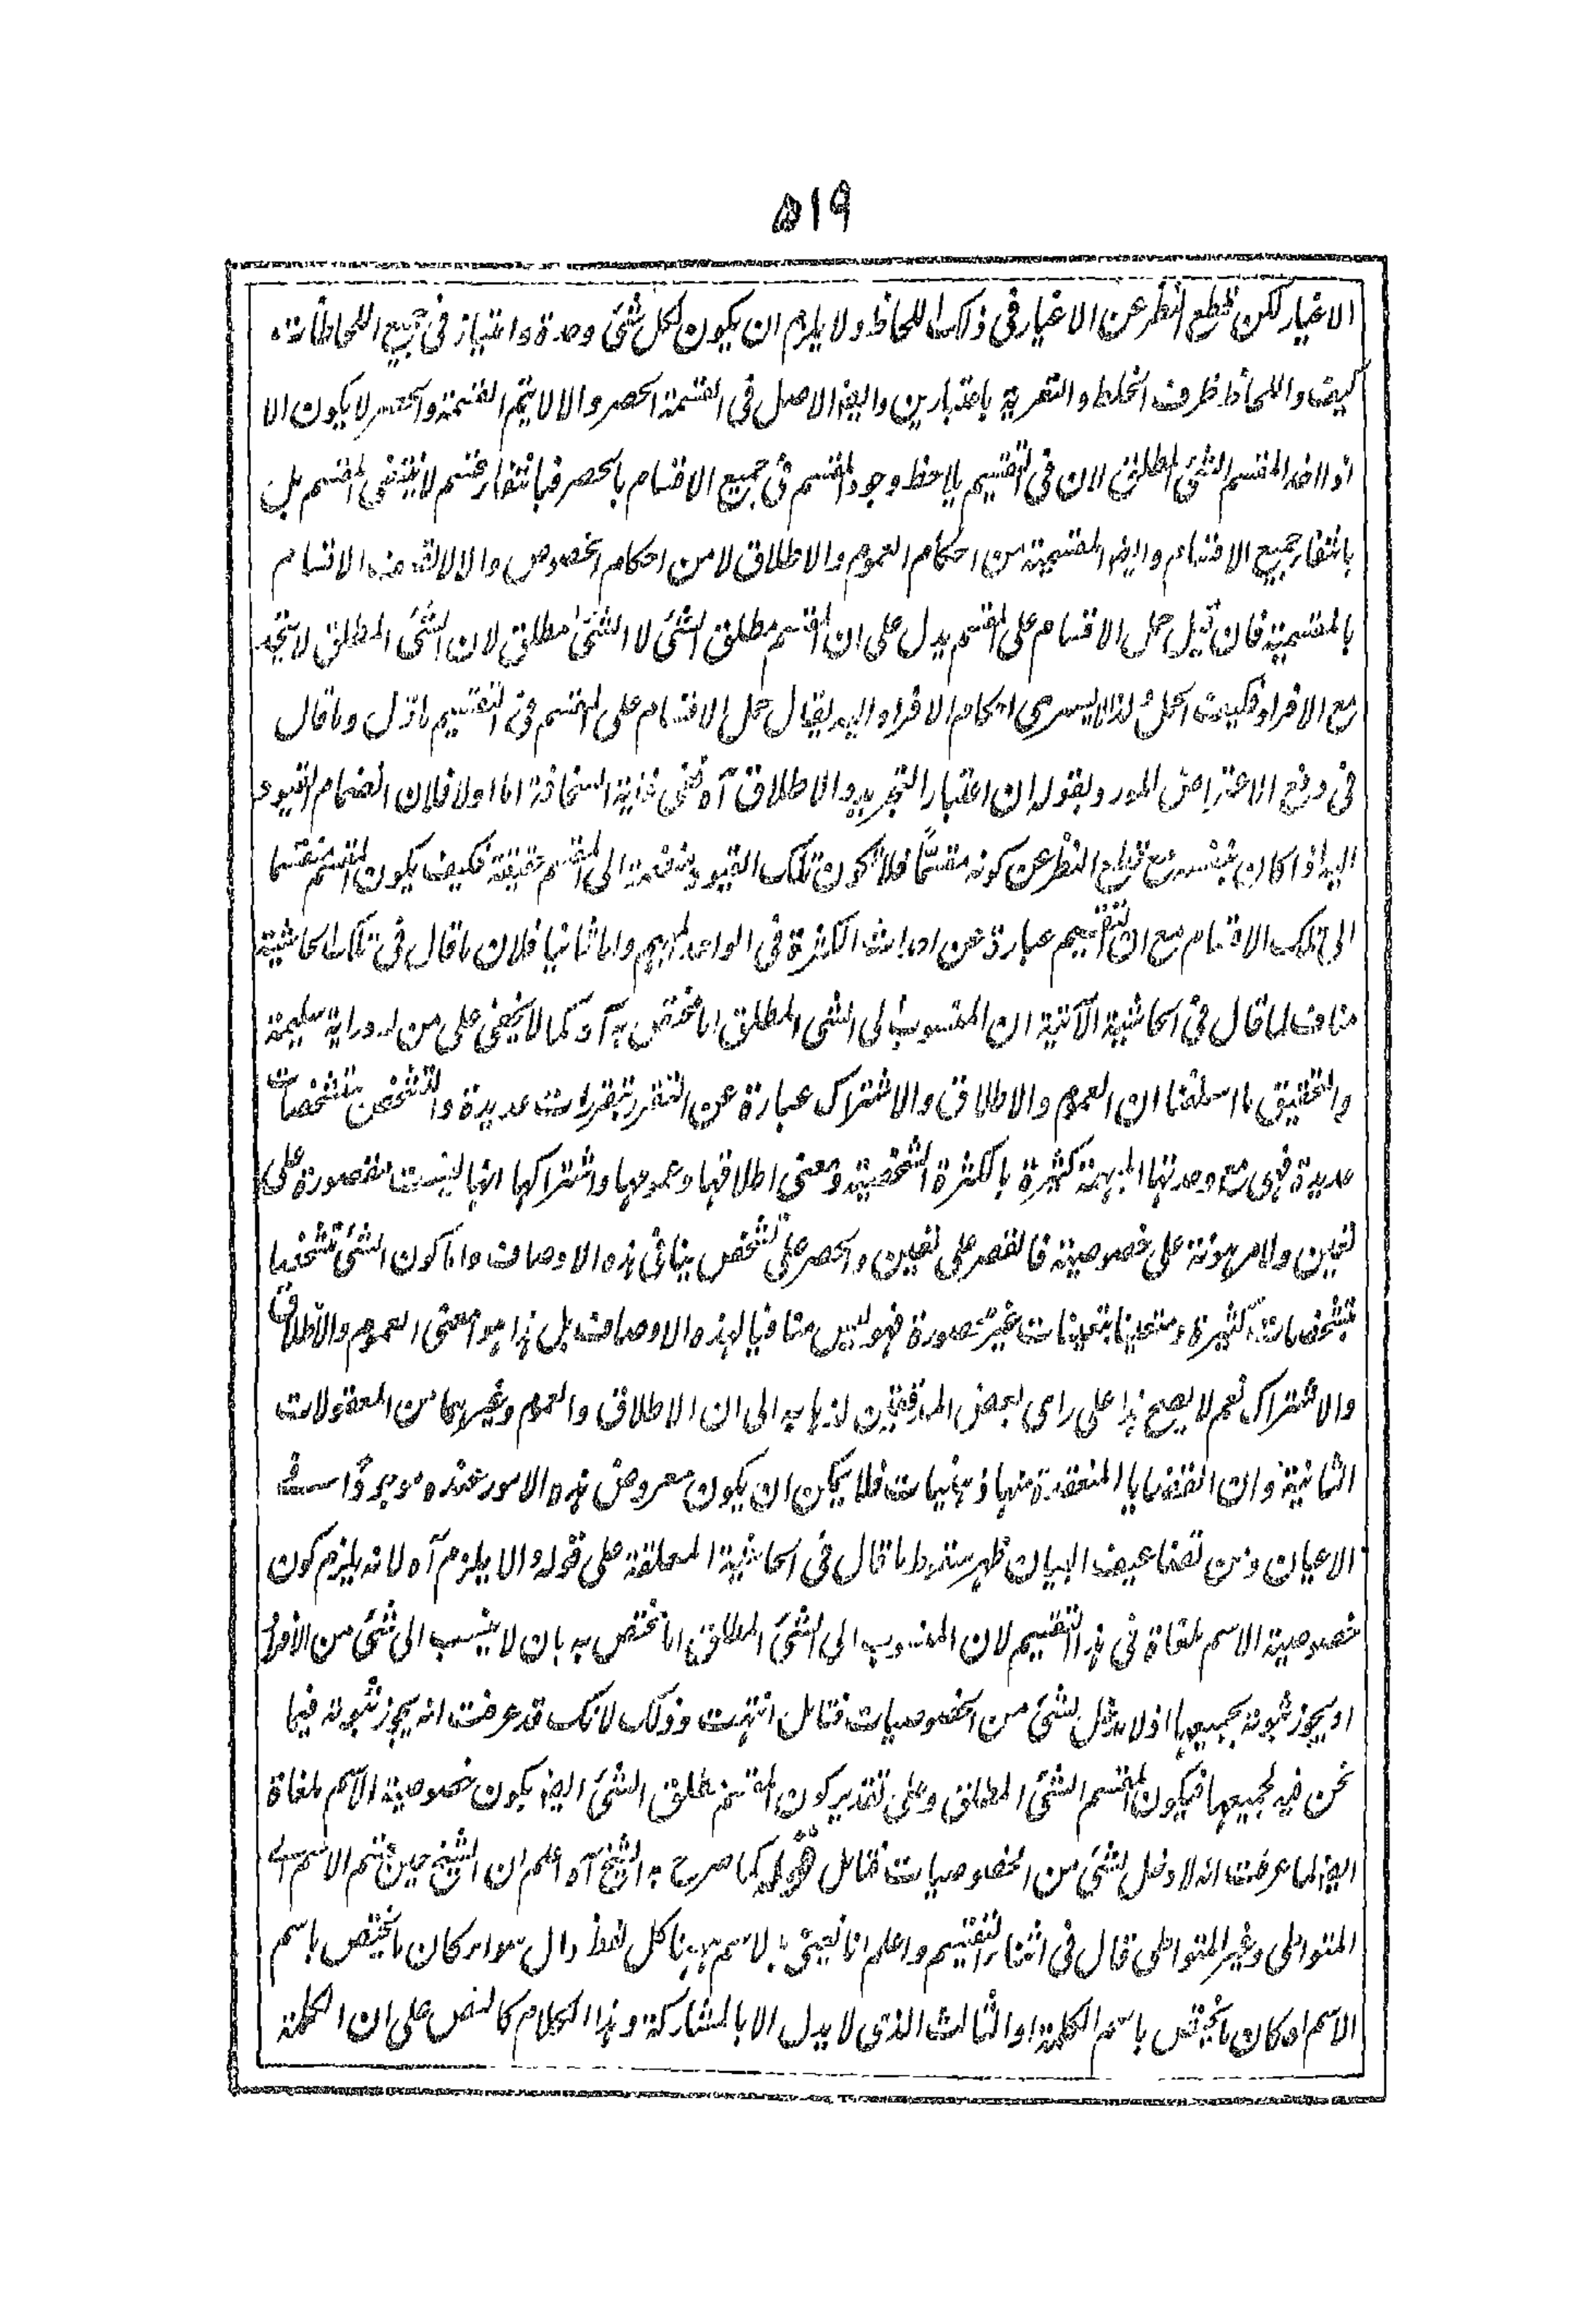 ٥١٩
الاغيار لكن قطع النظر عن الاغيار فى ذلك اللحاظ ولا يلزم ان يكون لكل شئ وحدة وامتياز فى جميع اللحاظات
كيف واللحاظ ظرف الخلط والتعرية باعتبارين وايضا الاصل فى القسمة الحصر والا لا يتم القسمة والحصر لا يكون الا
اذا اخذ المقسم الشئ المطلق لان فى التقسيم يلاحظ وجود المقسم فى جميع الاقسام بالحصر فبانتفاء قسم لا ينتفى المقسم بل
بانتفاء جميع الاقسام وايضا المقسمية من احكام العموم والاطلاق لا من احكام الخصوص والا لاتصف الاقسام
بالمقسمية فان قيل حمل الاقسام على المقسم يدل على ان المقسم مطلق الشئ لا الشئ المطلق لان الشئ المطلق لا يتحد
مع الافراد فكيف الحمل ولذا لا يسرى احكام الافراد اليه يقال حمل الاقسام على المقسم فى التقسيم ماول وما قال
فى دفع الاعتراض المورد بقوله ان اعتبار التجريد والاطلاق آه ففى غاية السخافة اما اولا فلان انضمام القيود
اليه اذا كان بنفسه مع قطع النظر عن كونه مقسمًا فلا تكون تلك القيود منضمة الى المقسم حقيقة فكيف يكون المقسم منقسما
الى تلك الاقسام مع ان التقسيم عبارة عن احداث الكثرة فى الواحد المبهم واما ثانيا فلان ما قال فى تلك الحاشية
مناف لما قال فى الحاشية الآتية ان المنسوب الى الشئ المطلق اما مختص به آه كما لا يخفى على من له دراية سليمة
والتحقيق ما اسلفنا ان العموم والاطلاق والاشتراك عبارة عن التقرر بتقررات عديدة والتشخص بتشخصات
عديدة فهى مع وحدتها المبهمة كثيرة بالكثرة الشخصية ومعنى اطلاقها وعمومها واشتراكها انها ليست مقصورة على
تعين ولا مرهونة على خصوصية فالقصر على تعين والحصر على تشخص ينافى هذه الاوصاف واما كون الشئ متشخصا
بتشخصات كثيرة ومتعينا بتعينات غير محصورة فهو ليس منافيا لهذه الاوصاف بل هذا هو معنى العموم والاطلاق
والاشتراك نعم لا يصح هذا على راى بعض المدققين لذهابه الى ان الاطلاق والعموم وغيرهما من المعقولات
الثانية وان القضايا المنعقدة منها ذهنيات فلا يمكن ان يكون معروض هذه الامور عنده موجودًا فى
الاعيان ومن تضاعيف البيان ظهر سقوط ما قال فى الحاشية المعلقة على قوله والا يلزم آه لانه يلزم كون
خصوصية الاسم ملغاة فى هذا التقسيم لان المنسوب الى الشئ المطلق اما مختص به بان لا ينسب الى شئ من الافراد
او يجوز ثبوته بجميعها اذ لا دخل لشئ من الخصوصيات فتامل انتهت وذلك لانك قد عرفت انه يجوز ثبوته فيما
نحن فيه لجميعها فيكون المقسم الشئ المطلق وعلى تقدير كون المقسم مطلق الشئ ايضا يكون خصوصية الاسم ملغاة
ايضا لما عرفت انه لا دخل لشئ من الخصوصيات فتامل قوله كما صرح به الشيخ آه اعلم ان الشيخ حين قسم الاسم الى
المتواطى وغير المتواطى قال فى اثناء التقسيم واعلم انا نعنى بالاسم ههنا كل لفظ دال سواء كان ما يختص باسم
الاسم او كان ما يختص باسم الكلمة او الثالث الذى لا يدل الا بالمشاركة وهذا الكلام كالنص على ان الكلمة